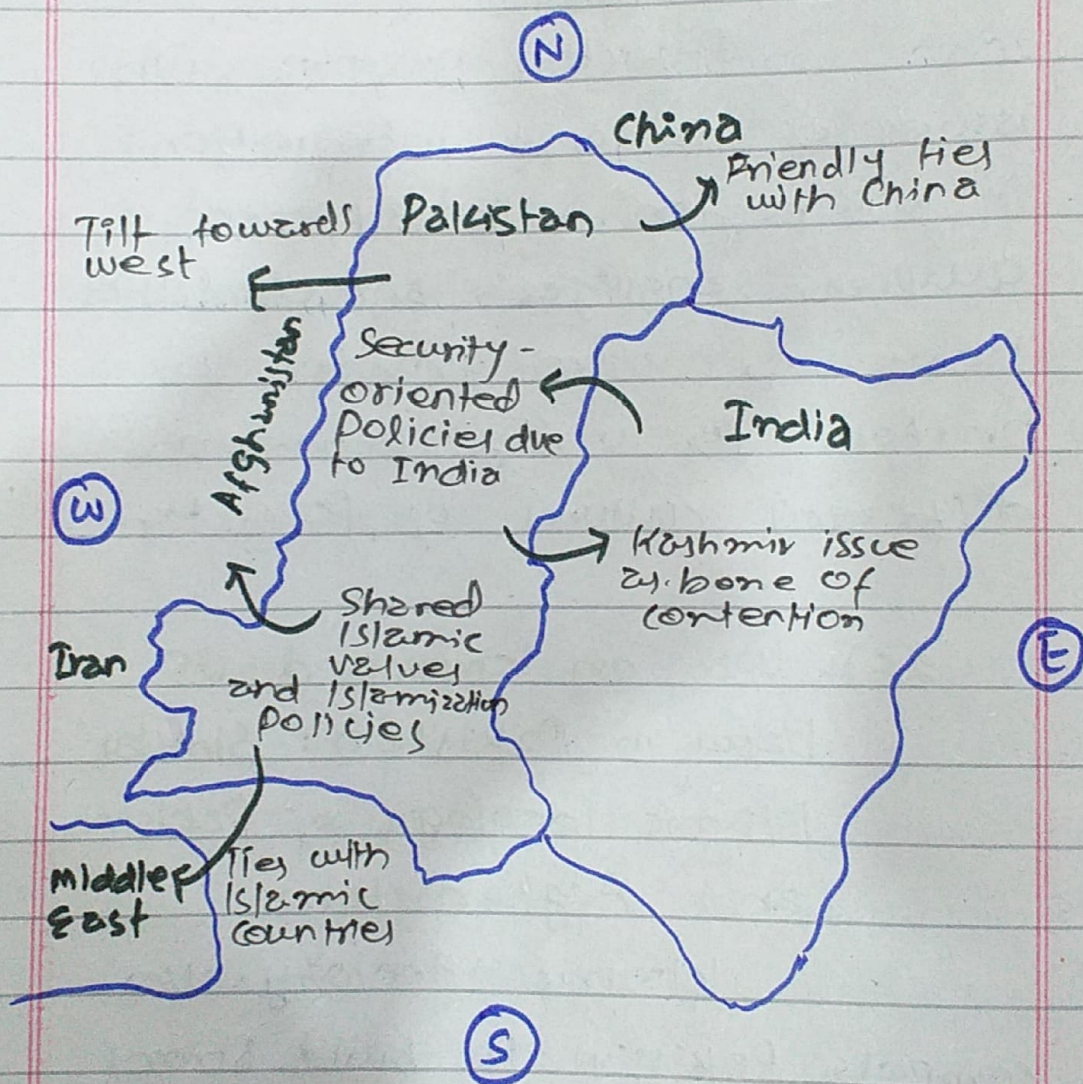 N
China
Friendly ties
with China
Tilt towards
west
Pakistan
Afghanistan
Security-
oriented
Policies due
to India
India
W
Kashmir issue
as bone of
contention
E
Iran
Shared
Islamic
values
and Islamization
Policies
Middle
East
Ties with
Islamic
countries
S